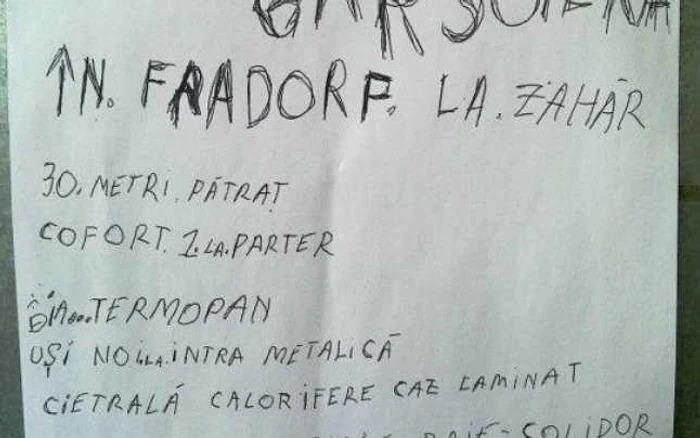 GARSONERA
ÎN. FAADORF. LA. ZAHĂR
30. METRI. PĂTRAȚ
COFORT. 1. LA. PARTER
TERMOPAN
UȘI NOI LA INTRA METALICĂ
CIETRALĂ CALORIFERE CAZ LAMINAT
BAIE - SOLIDOR